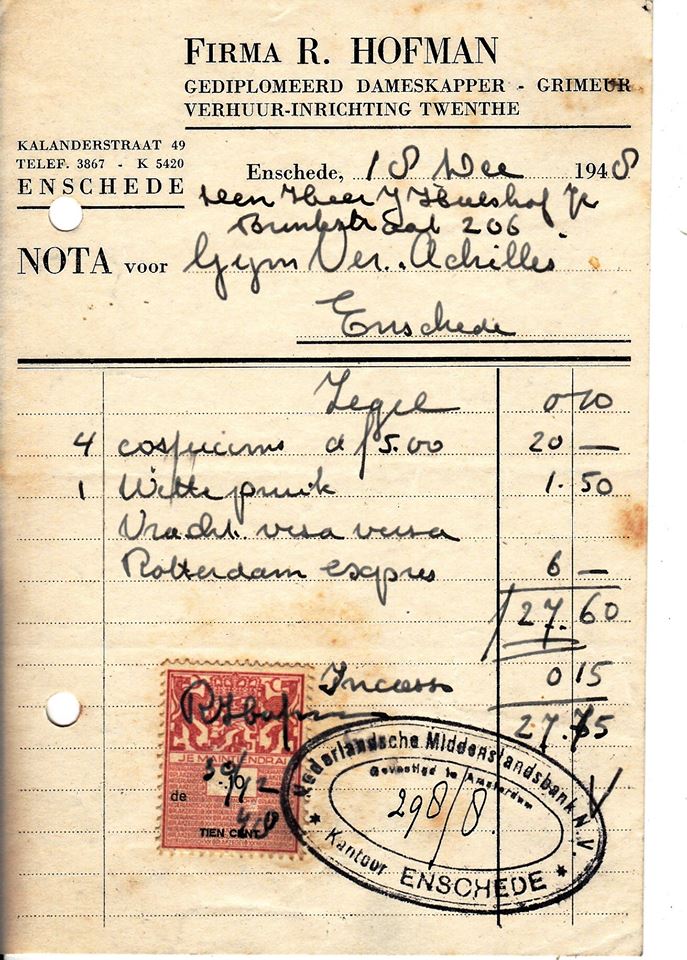 FIRMA R. HOFMAN
GEDIPLOMEERD DAMESKAPPER - GRIMEUR
VERHUUR-INRICHTING TWENTHE
KALANDERSTRAAT 49
TELEF. 3867 - K 5420
ENSCHEDE
Enschede, 18 Dec 1948
Den Heer J Hulshof Jr
Brinkstraat 206
NOTA voor Gym Ver. Achilles
Enschede
Zegel 0 10
4 costuums a f 5.00 20 —
1 Witte pruik 1.50
Vracht. visa versa
Rotterdam expres 6 —
27.60
Incasso 0 15
27.75
R Hofman
JE MAINTIENDRAI
30/12
10
de
48
TIEN CENT
Nederlandsche Middenstandsbank N.V.
Gevestigd te Amsterdam
298/8.
* Kantoor ENSCHEDE *